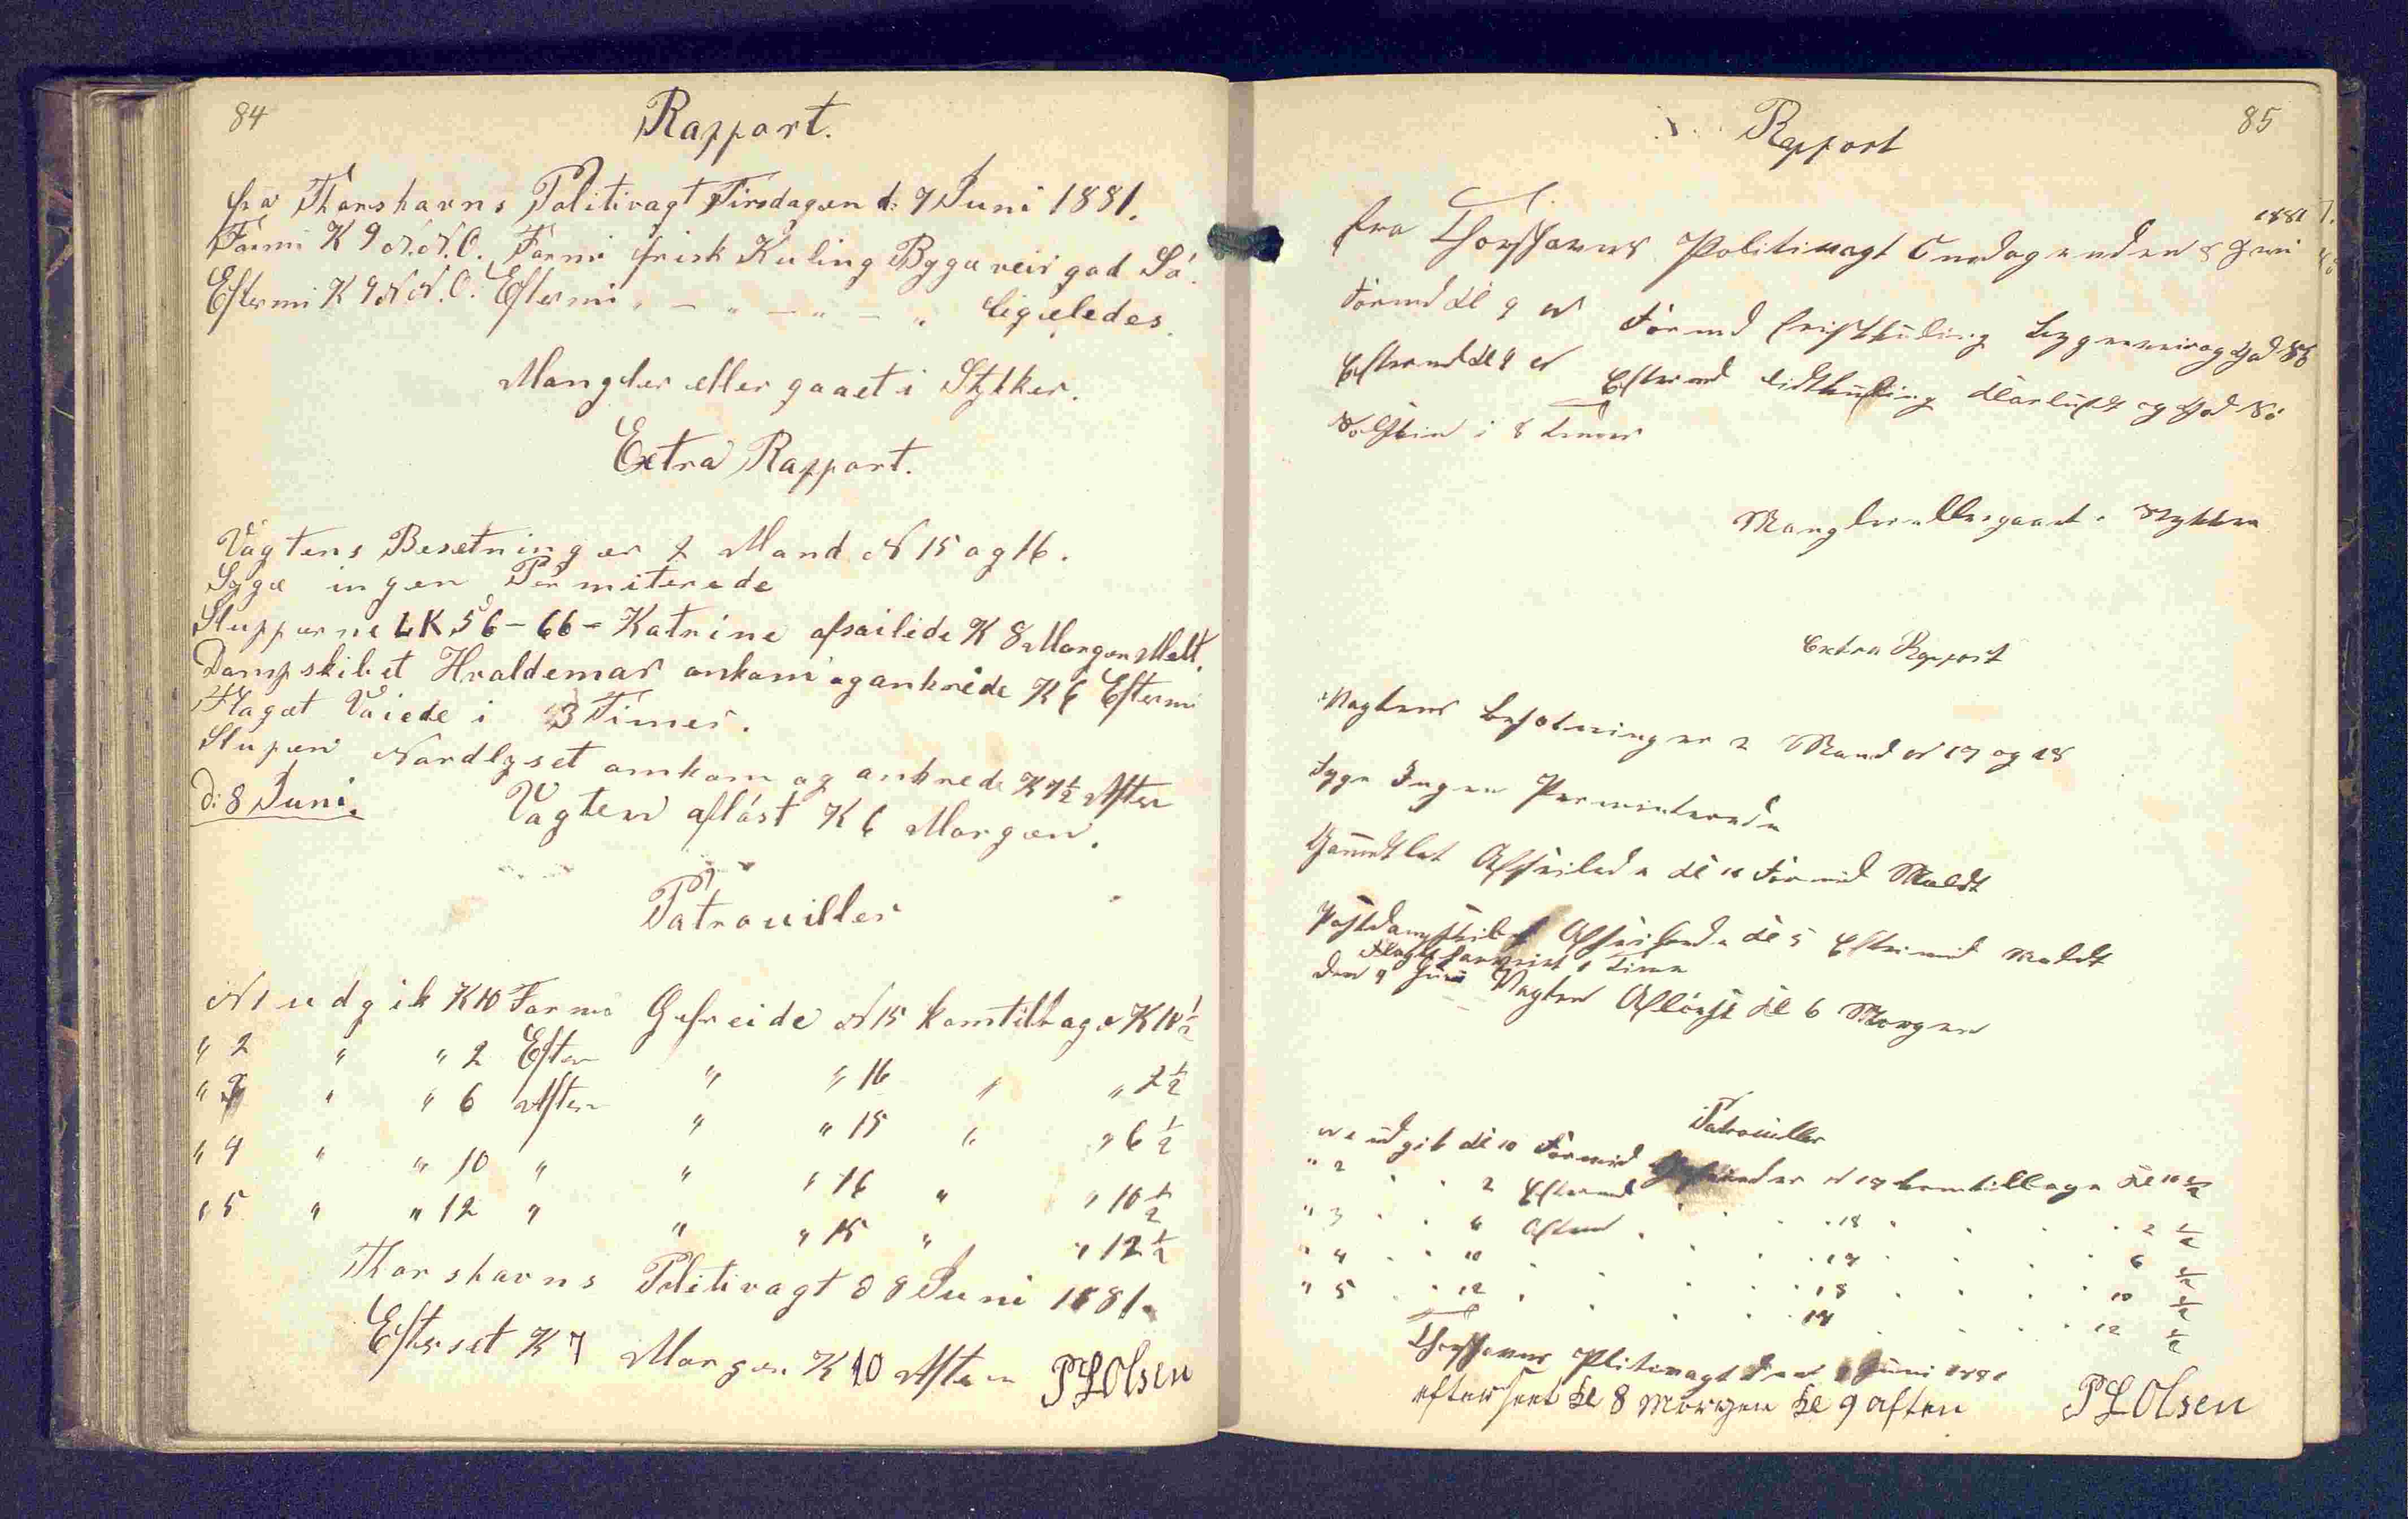 84
Rapport.
fra Thorshavns Politivagt Tirsdagen d: 7 Juni 1881.
Formi K 9 N.N.O. Formi frisk Kuling Bygeveir god Sö.
Eftermi K 9 N.N.O. Eftermi „ — „ — „ — „ ligeledes.
Mangler eller gaaet i Stykker.
Extra Rapport.
Vagtens Besetning er 2 Mand N 15 og 16.
Syge ingen Permiterede
Slupperne LK 56 - 66 - Katrine afseilede K 8 Morgen Meldt.
Dampskibet Hvaldemar ankom og ankrede K 6 Eftermi
Flaget Vaiede i 3 Timer.
Slupen Nordlyset omkom og ankrede K 7½ Aften
d: 8 Juni. Vagten aflöst K 6 Morgen.
Patrouiller
N 1 udgik K 10 Formi Gefreide N 15 komtilbage K 10½
„ 2 „ „ 2 Efter „ „ 16 „ „ 2½
„ 3 „ „ 6 Aften „ „ 15 „ „ 6½
„ 4 „ „ 10 „ „ „ 16 „ „ 10½
„ 5 „ „ 12 „ „ „ 15 „ „ 12½
Thorshavns Politivagt d 8 Juni 1881.
Efterset K 7 Morgen K 10 Aften PLOlsen
85
Rapport
1881
fra Thorshavns Politivagt Onsdagen den 8 Juni
Formd Kl 9 N Formd friskkuling byggeveir og god Sö
Eftermd Kl 9 N Eftermd lidtkuling Klarluft og god Sö
Solskin i 8 Timer
Mangler eller gaaet i Stykker
Extra Rapport
Vagtens besetning er 2 Mand N 17 og 18
Syge Ingen Permiterede
Afseilede Kl 10 Formid Meldt
Postdampskibet Afseilede Kl 5 Eftermid Meldt
Flaget har veiet 1 Time
den 9 Juni Vagten Aflöst Kl 6 Morgen
Patrouiller
N 1 udgik Kl 10 Formid Gefreider N 17 komtilbage Kl 10 ½
„ 2 . . 2 Eftermd . . 18 . . 2 ½
„ 3 . . 6 Aften . . 17 . . 6 ½
„ 4 . . 10 . . . 18 . . 10 ½
„ 5 . . 12 . . . 17 . . 12 ½
Thorshavns Plitivagt den 9 Juni 1881
efterseet Kl 8 Morgen Kl 9 aften PLOlsen